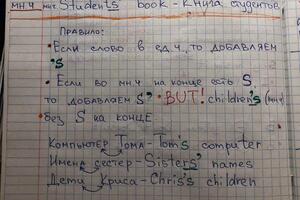 мн.ч мн. Students' book - книга студентов
Правило:
• Если слово в ед.ч., то добавляем
's
• Если во мн.ч на конце есть S,
то добавляем s' • BUT! children's (мн.ч)
• без S на конце
Компьютер Тома - Tom's computer
Имена сестер - Sisters' names
Дети Криса - Chris's children